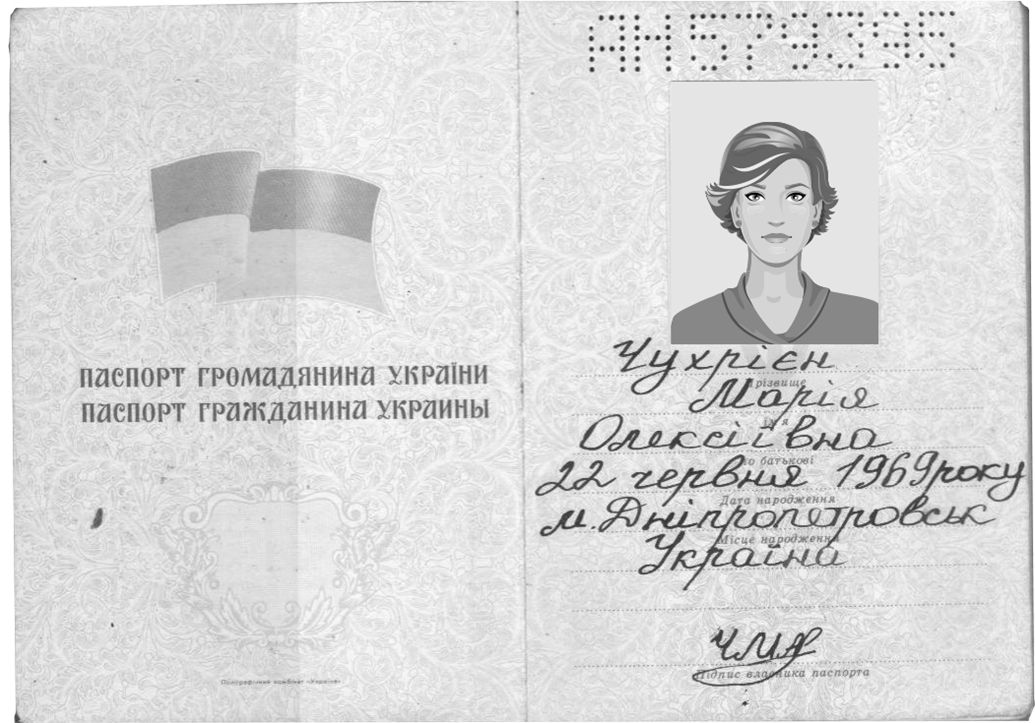 ПАСПОРТ ГРОМАДЯНИНА УКРАЇНИ
ПАСПОРТ ГРАЖДАНИНА УКРАИНЫ
Поліграфічний комбінат «Україна»
АН579395
Чухрієн
Прізвище
Марія
Ім'я
Олексіївна
По батькові
22 червня 1969 року
Дата народження
м. Дніпропетровськ
Місце народження
Україна
ЧМА
Підпис власника паспорта